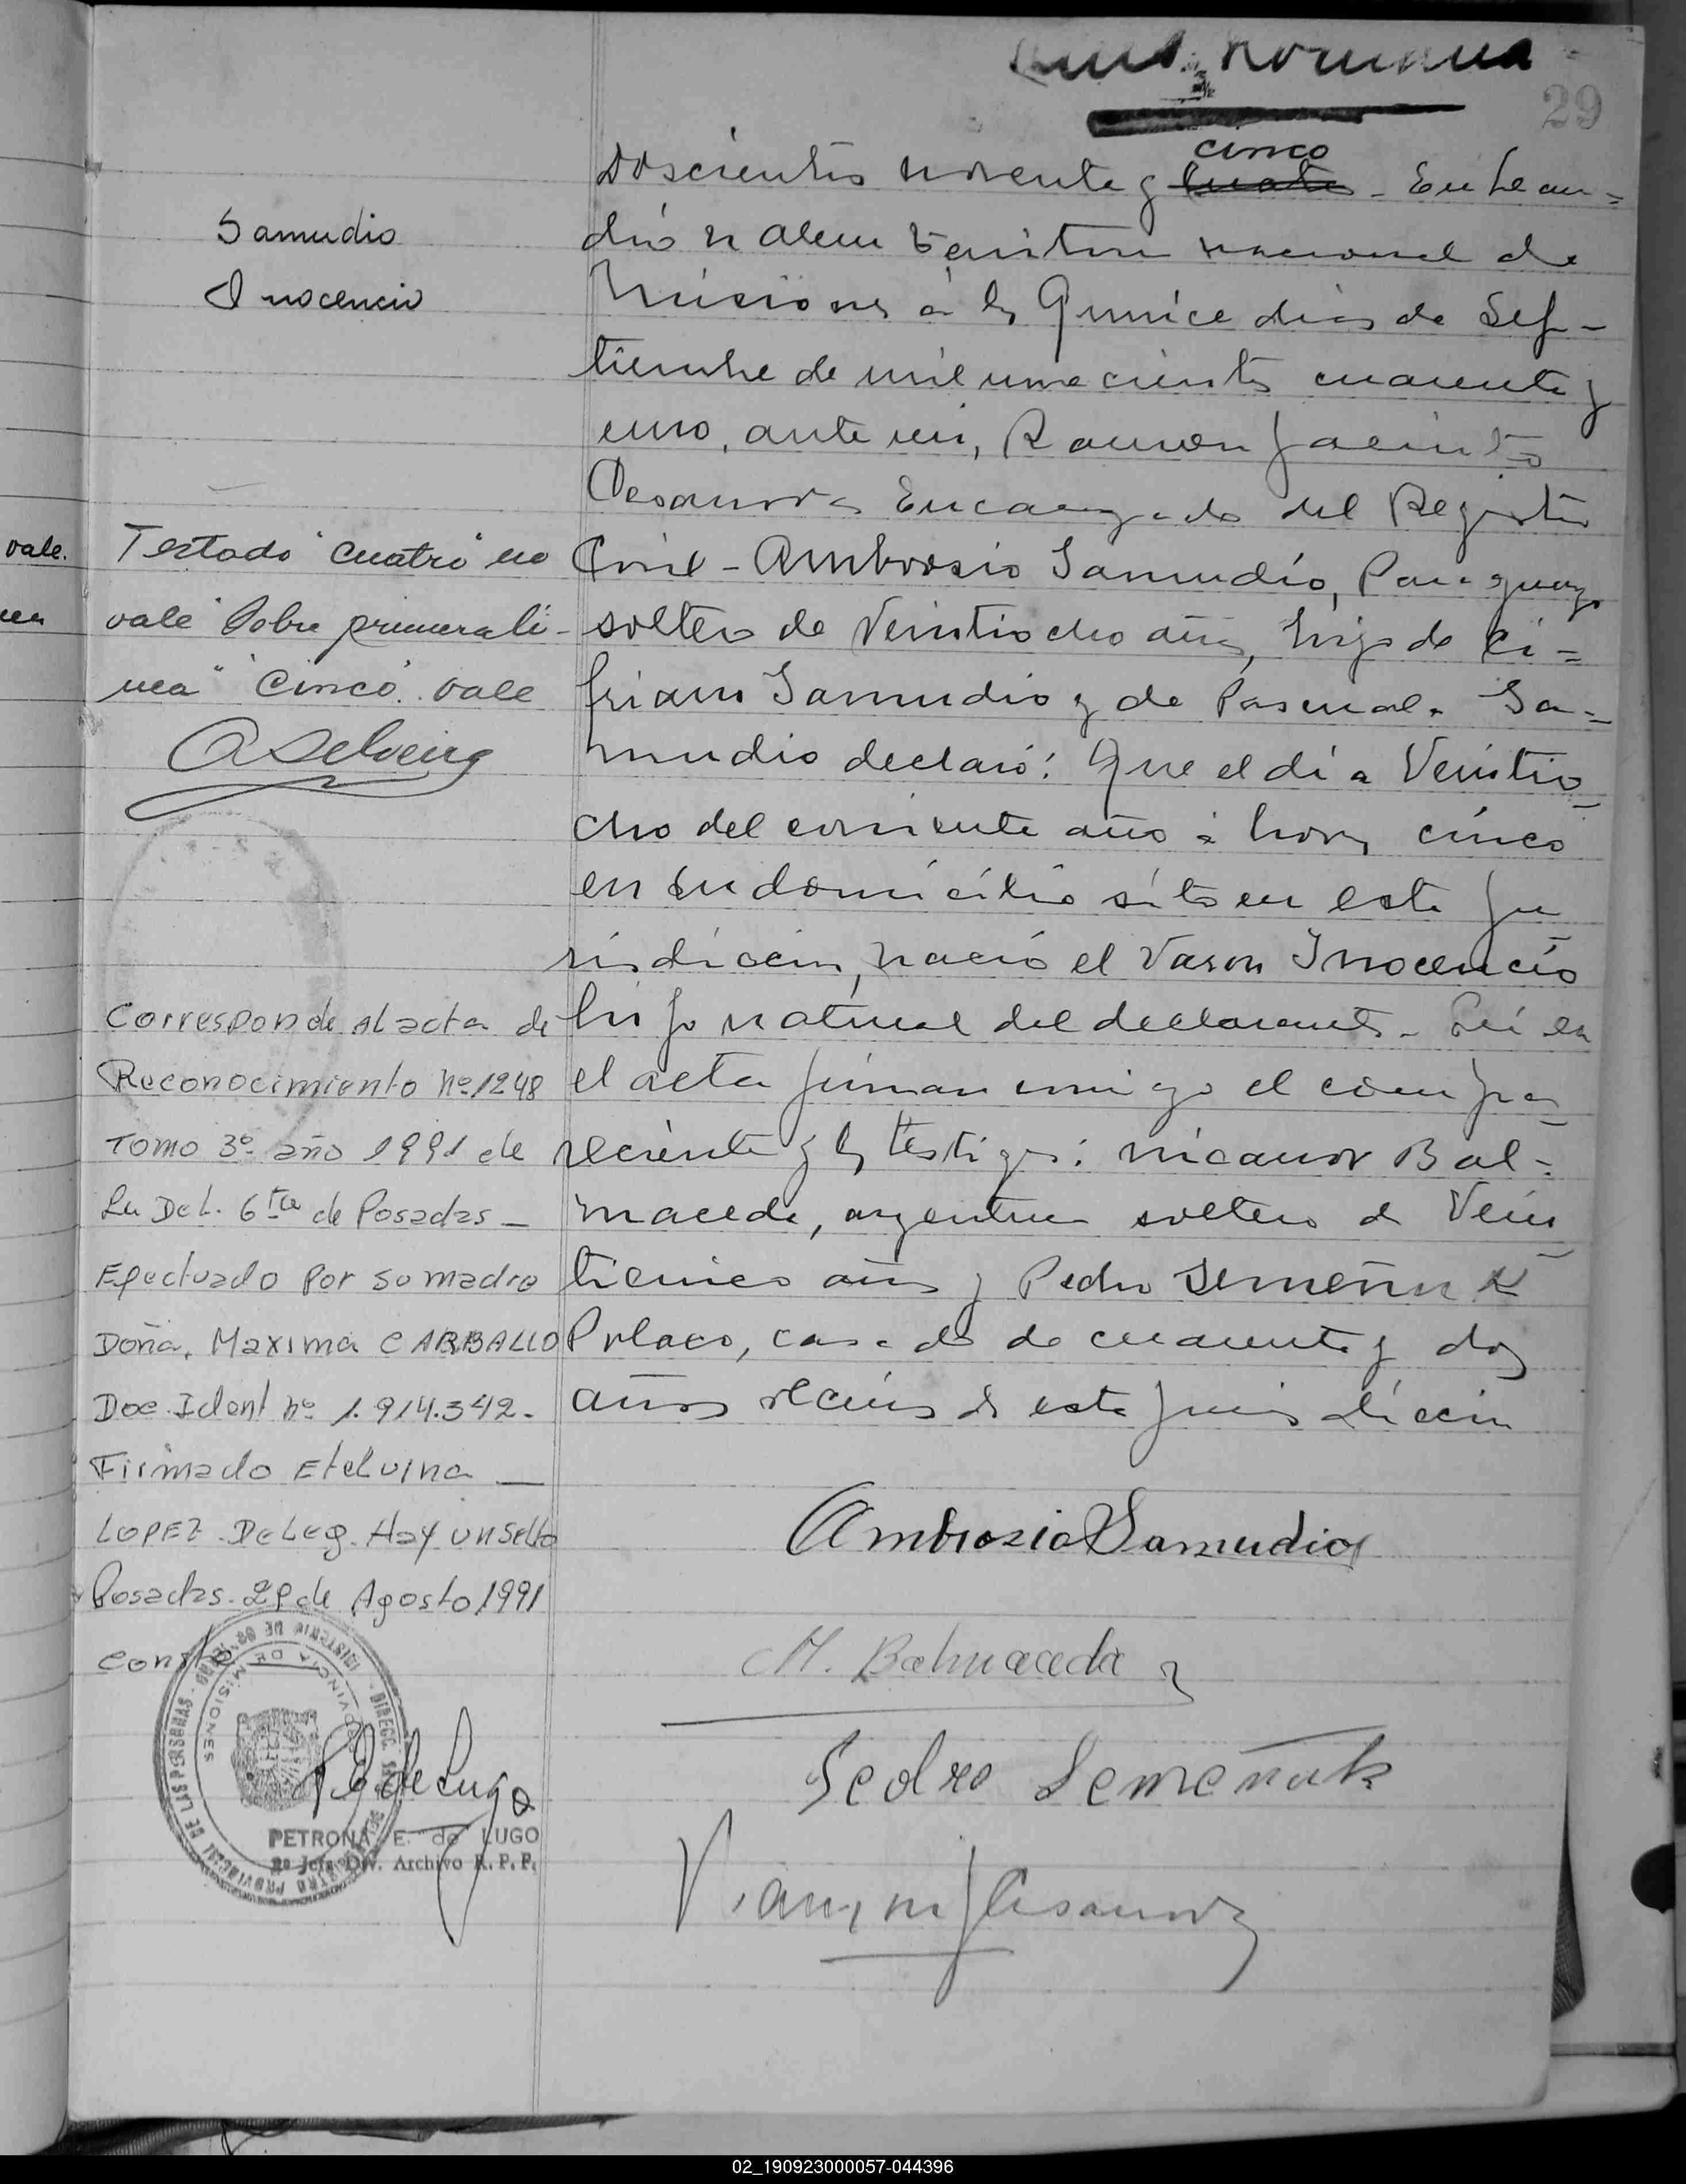 29
cinco
Doscientos noventa y cuatro - En Lean=
dro N Alem Territorio nacional de
Misiones a los Quince dias de Sep-
tiembre de mil novecientos cuarenta y
uno, ante mi, Ramon Jacinto
Casanova Encargado del Registro
Civil - Ambrosio Samudio, Paraguayo
soltero de Veintiocho años, hijo de Ci=
priano Samudio y de Pascuala Sa=
mudio declaró: Que el día Veintio
cho del corriente año a horas cinco
en su domicilio sito en esta ju
risdiccion, nació el Varon Inocencio
hijo natural del declarante. Leida
el acta firman conmigo el compa
reciente y los testigos: Nicanor Bal=
maceda, argentino soltero de Vein
ticinco años y Pedro Semeñuk
Polaco, casado de cuarenta y dos
años vecinos de esta jurisdiccion
Ambrosio Samudio
M. Balmaceda
Pedro Semeñuk
Ramon J Casanova
Samudio
Inocencio
vale.
Testado "cuatro" no
vale "Sobre primera li-
nea" "Cinco" vale
Corresponde al acta de
Reconocimiento Nº 1248
Tomo 3º año 1991 de
La Del. 6ta de Posadas -
Efectuado Por su madre
Doña, Maxima CARBALLO
Doc. Ident nº 1.914.342.
Firmado Etelvina
LOPEZ - Deleg. Hay un sello
Posadas. 29 de Agosto 1991
Conste
PROVINCIA DE MISIONES
PETRONA E. de LUGO
2º Jefe Div. Archivo R. P. P.
02_190923000057-044396